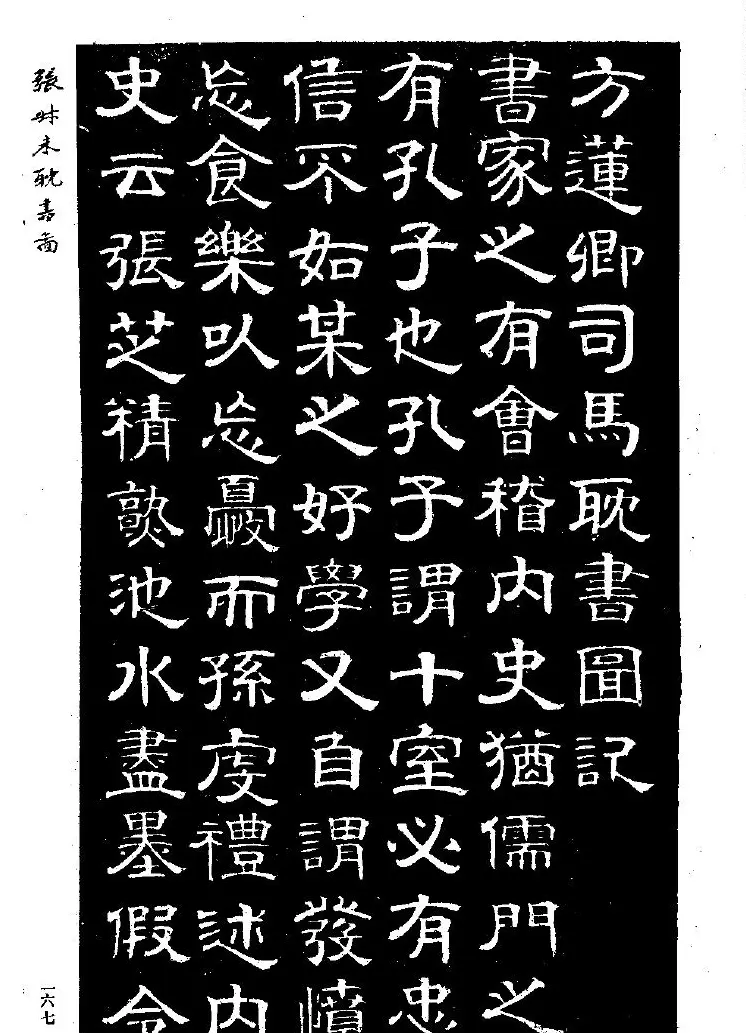 方蓮卿司馬耽書圖記
書家之有會稽内史猶儒門之
有孔子也孔子謂十室必有忠
信不如某之好學又自謂發憤
忘食樂以忘憂而孫虔禮述内
史云張芝精熟池水盡墨假令
張叔未耽書啚
一六七